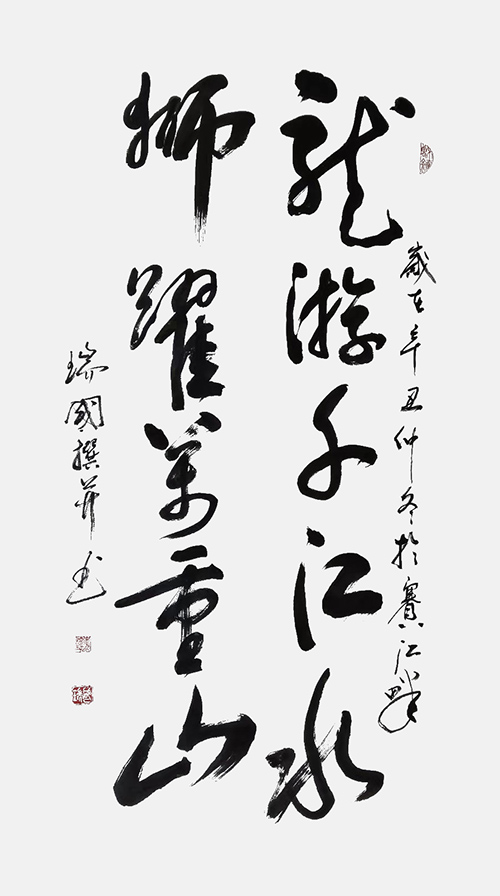 歲在辛丑仲冬於賽江畔
龍游千江水
獅躍萬重山
瑞國撰并书